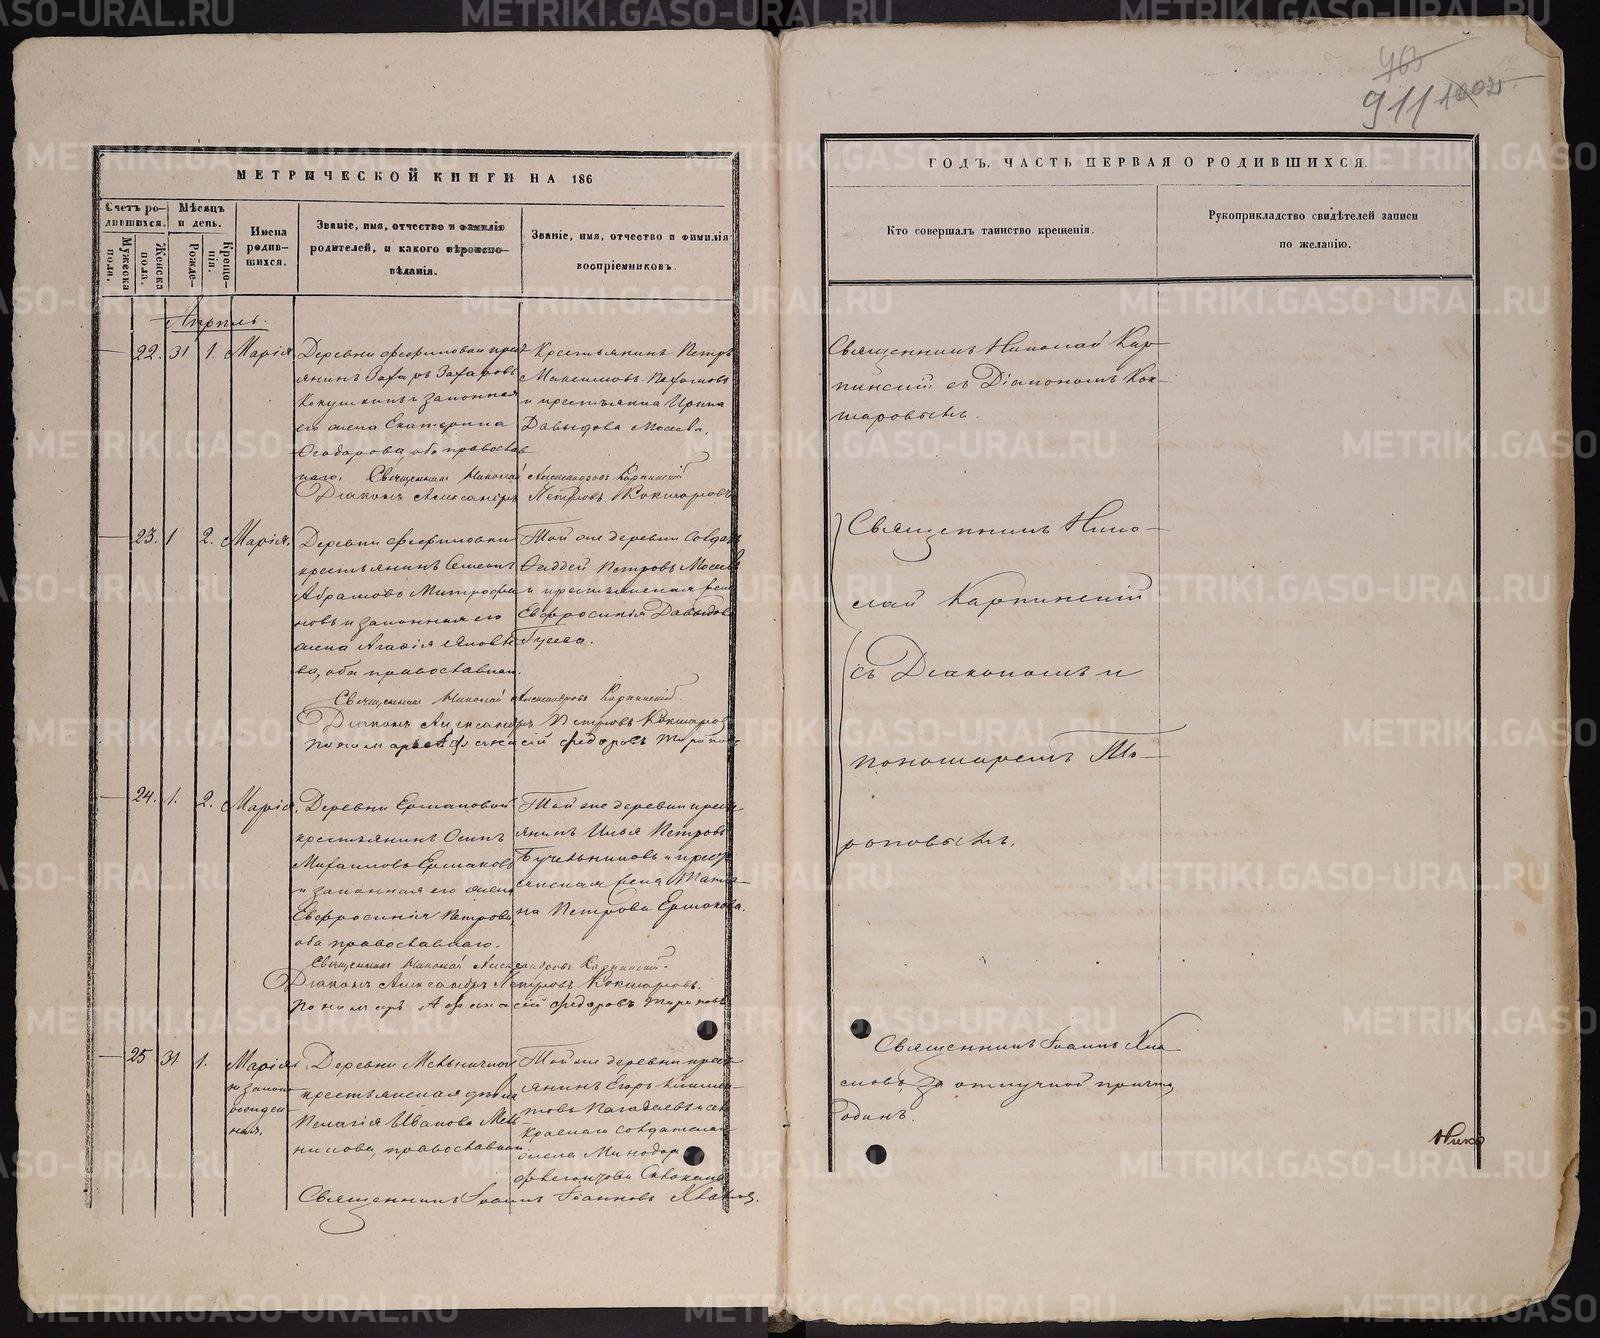 911
МЕТРИЧЕСКОЙ КНИГИ НА 186
Счетъ родившихся.
Мѣсяцъ и день.
Мужеска пола.
Женска пола.
Рожденія.
Крещенія.
Имена родившихся.
Званіе, имя, отчество и фамилія родителей, и какого вѣроисповѣданія.
Званіе, имя, отчество и фимилія воспріемниковъ.
Апрѣль.
22. 31 1. Марія
Деревни
янинъ Захаръ Захаровъ
Кокушкинъ и законная
его жена Екатерина
Ѳеодорова, оба православ
наго.
Крестьянинъ Петръ
Максимовъ Пахомовъ
Ирина
Давыдова Мосеева.
Священникъ Николай Александровъ Карпинскій
Діаконъ Александръ Петровъ Кокшаровъ
23. 1 2. Марія.
Деревни
крестьянинъ Семенъ
Абрамовъ Митрофа
новъ и законная его
жена Агафія
ва, оба православнаго.
Той же деревни солдатъ
Фаддей Петровъ Мосеевъ
и крестьянская
Евфросинія Давыдова
Гусева.
Священникъ Николай Александровъ Карпинскій
Діаконъ Александръ Петровъ Кокшаровъ
Пономарь Афанасій Федоровъ Тороповъ
24. 1. 2. Марія.
Деревни Ермаковой
крестьянинъ Осипъ
Михаиловъ Ермаковъ
и законная его жена
Евфросинія Петрова,
оба православнаго.
Той же деревни крест
янинъ Илья Петровъ
и крест
янская Татья-
на Петрова Ермакова.
Священникъ Николай Александровъ Карпинскій.
Діаконъ Александръ Петровъ Кокшаровъ.
Пономарь Афанасій Федоровъ Тороповъ
25 31. 1. Марія
незаконно
рожден
ная.
Деревни Мельничной
крестьянская
Пелагія Иванова Мель-
никова, православнаго
Той же деревни крест
янинъ Егоръ Климен-
товъ
солдатская
жена Минодора
Священникъ Іоаннъ Іоанновъ
ГОДЪ, ЧАСТЬ ПЕРВАЯ О РОДИВШИХСЯ.
Кто совершалъ таинство крещенія.
Рукоприкладство свидѣтелей записи по желанію.
Священникъ Николай Кар-
пинскій съ Діакономъ Кок-
шаровымъ.
Священникъ Нико-
лай Карпинскій
съ Діакономъ и
пономаремъ То-
роповымъ.
Священникъ Іоаннъ
за отлучкой причта,
одинъ.
Нико
METRIKI.GASO-URAL.RU